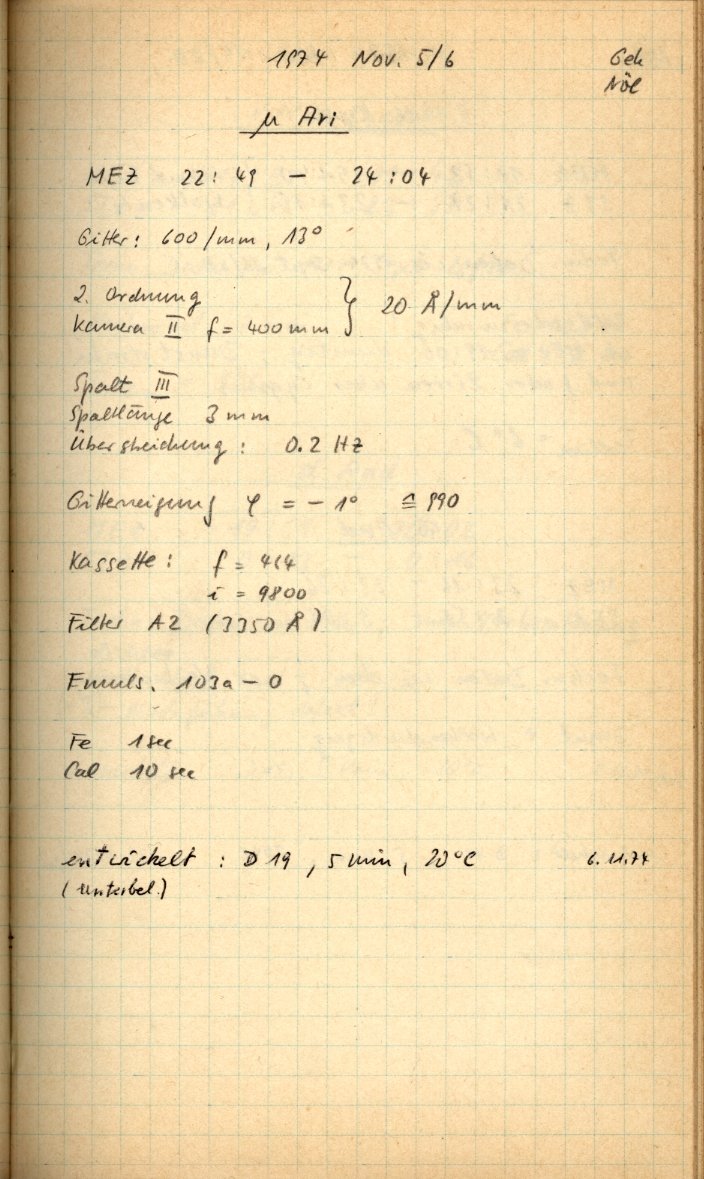 1974 Nov. 5/6 Geh
Nöl
µ Ari
MEZ 22:49 – 24:04
Gitter: 600/mm, 13°
2. Ordnung } 20 Å/mm
Kamera II f = 400 mm
Spalt III
Spaltlänge 3 mm
Überstreichung: 0.2 Hz
Gitterneigung φ = – 1° ≙ 990
Kassette: f = 464
i = 9800
Filter A2 (3350 Å)
Emuls. 103a – O
Fe 1 sec
Cal 10 sec
entwickelt : D 19, 5 min, 20°C 6.11.74
(unterbel.)